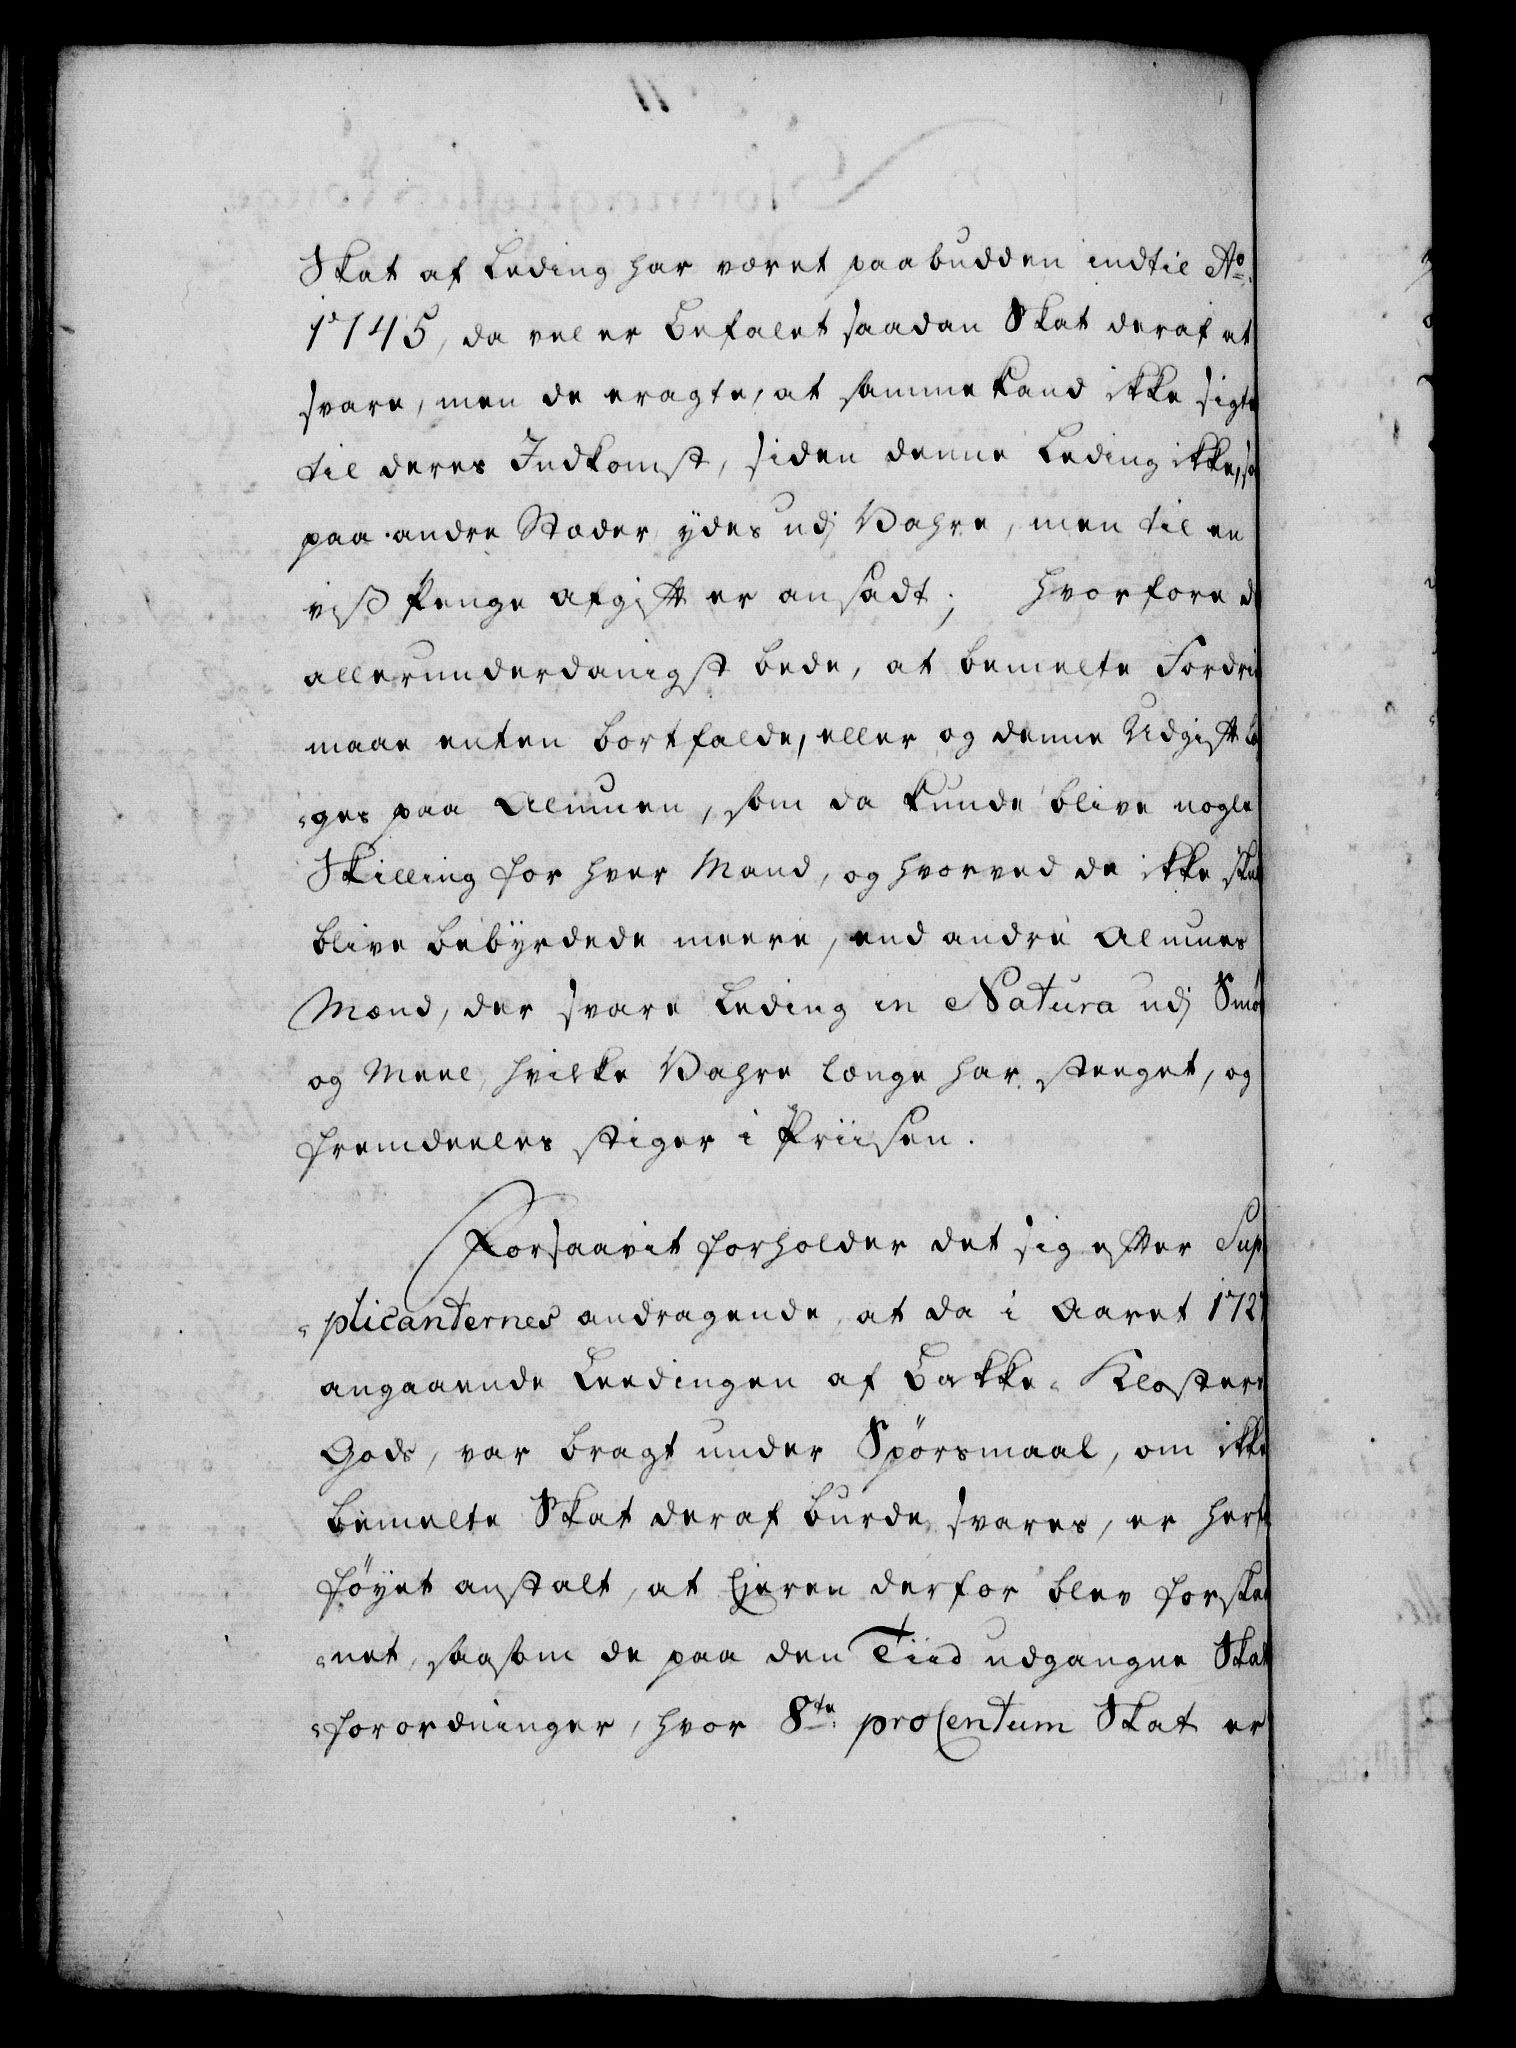 Skat af Leding har været paabudden indtil Ao
1745, da vel er befalet saadan Skat deraf at
svare, men de eragte, at samme kand ikke sigte
til deres Indkomst, siden denne Leding ikke, so
paa andre Stæder ydes udj Vahre, men til en
viss Penge afgift er ansadt; hvorfore d
allerunderdanigst bede, at bemelte Fordri
maae enten bortfalde, eller og denne Udgift læ
-ges paa Almuen, som da kunde blive nogle
Skilling for hver Mand, og hvorved de ikke skul
blive bebyrdede meere, end andre Almues
Mænd, der svare Leding in Natura udj Smø
og Meel, hvilke Vahre længe har steeget, og
fremdeeles stiger i Priisen.
Forsaavit forholder det sig efter Sup
-plicanternes andragende, at da i Aaret 1727
angaaende Leedingen af Bakke-Klosters
Gods, var bragt under Spørsmaal, om ikke
bemelte Skat deraf burde svares, er herfr
føyet anstalt, at Ejeren derfor blev forskaa
-net, saasom de paa den Tiid udgangne Skat
-forordninger, hvor 8te proCentum Skat er